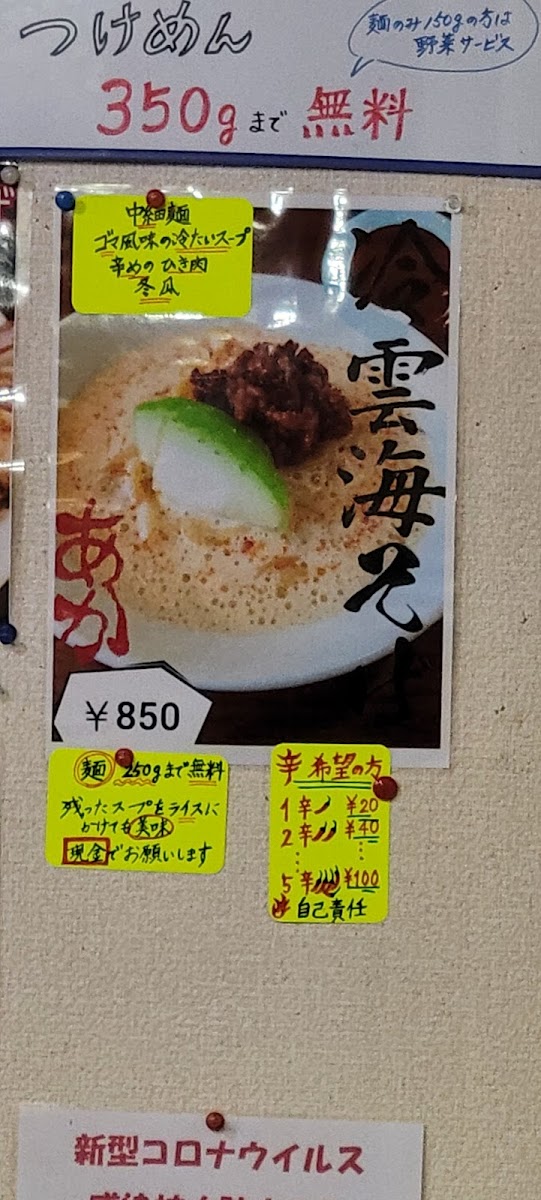 つけめん
麺のみ150gの方は
野菜サービス
350gまで 無料
中細麺
ゴマ風味の冷たいスープ
辛めのひき肉
冬瓜
冷 雲海そば
あか
￥850
麺 250gまで無料
残ったスープをライスに
かけても美味
現金でお願いします
辛 希望の方
1辛 ￥20
2辛 ￥40
5辛 ￥100
自己責任
新型コロナウイルス